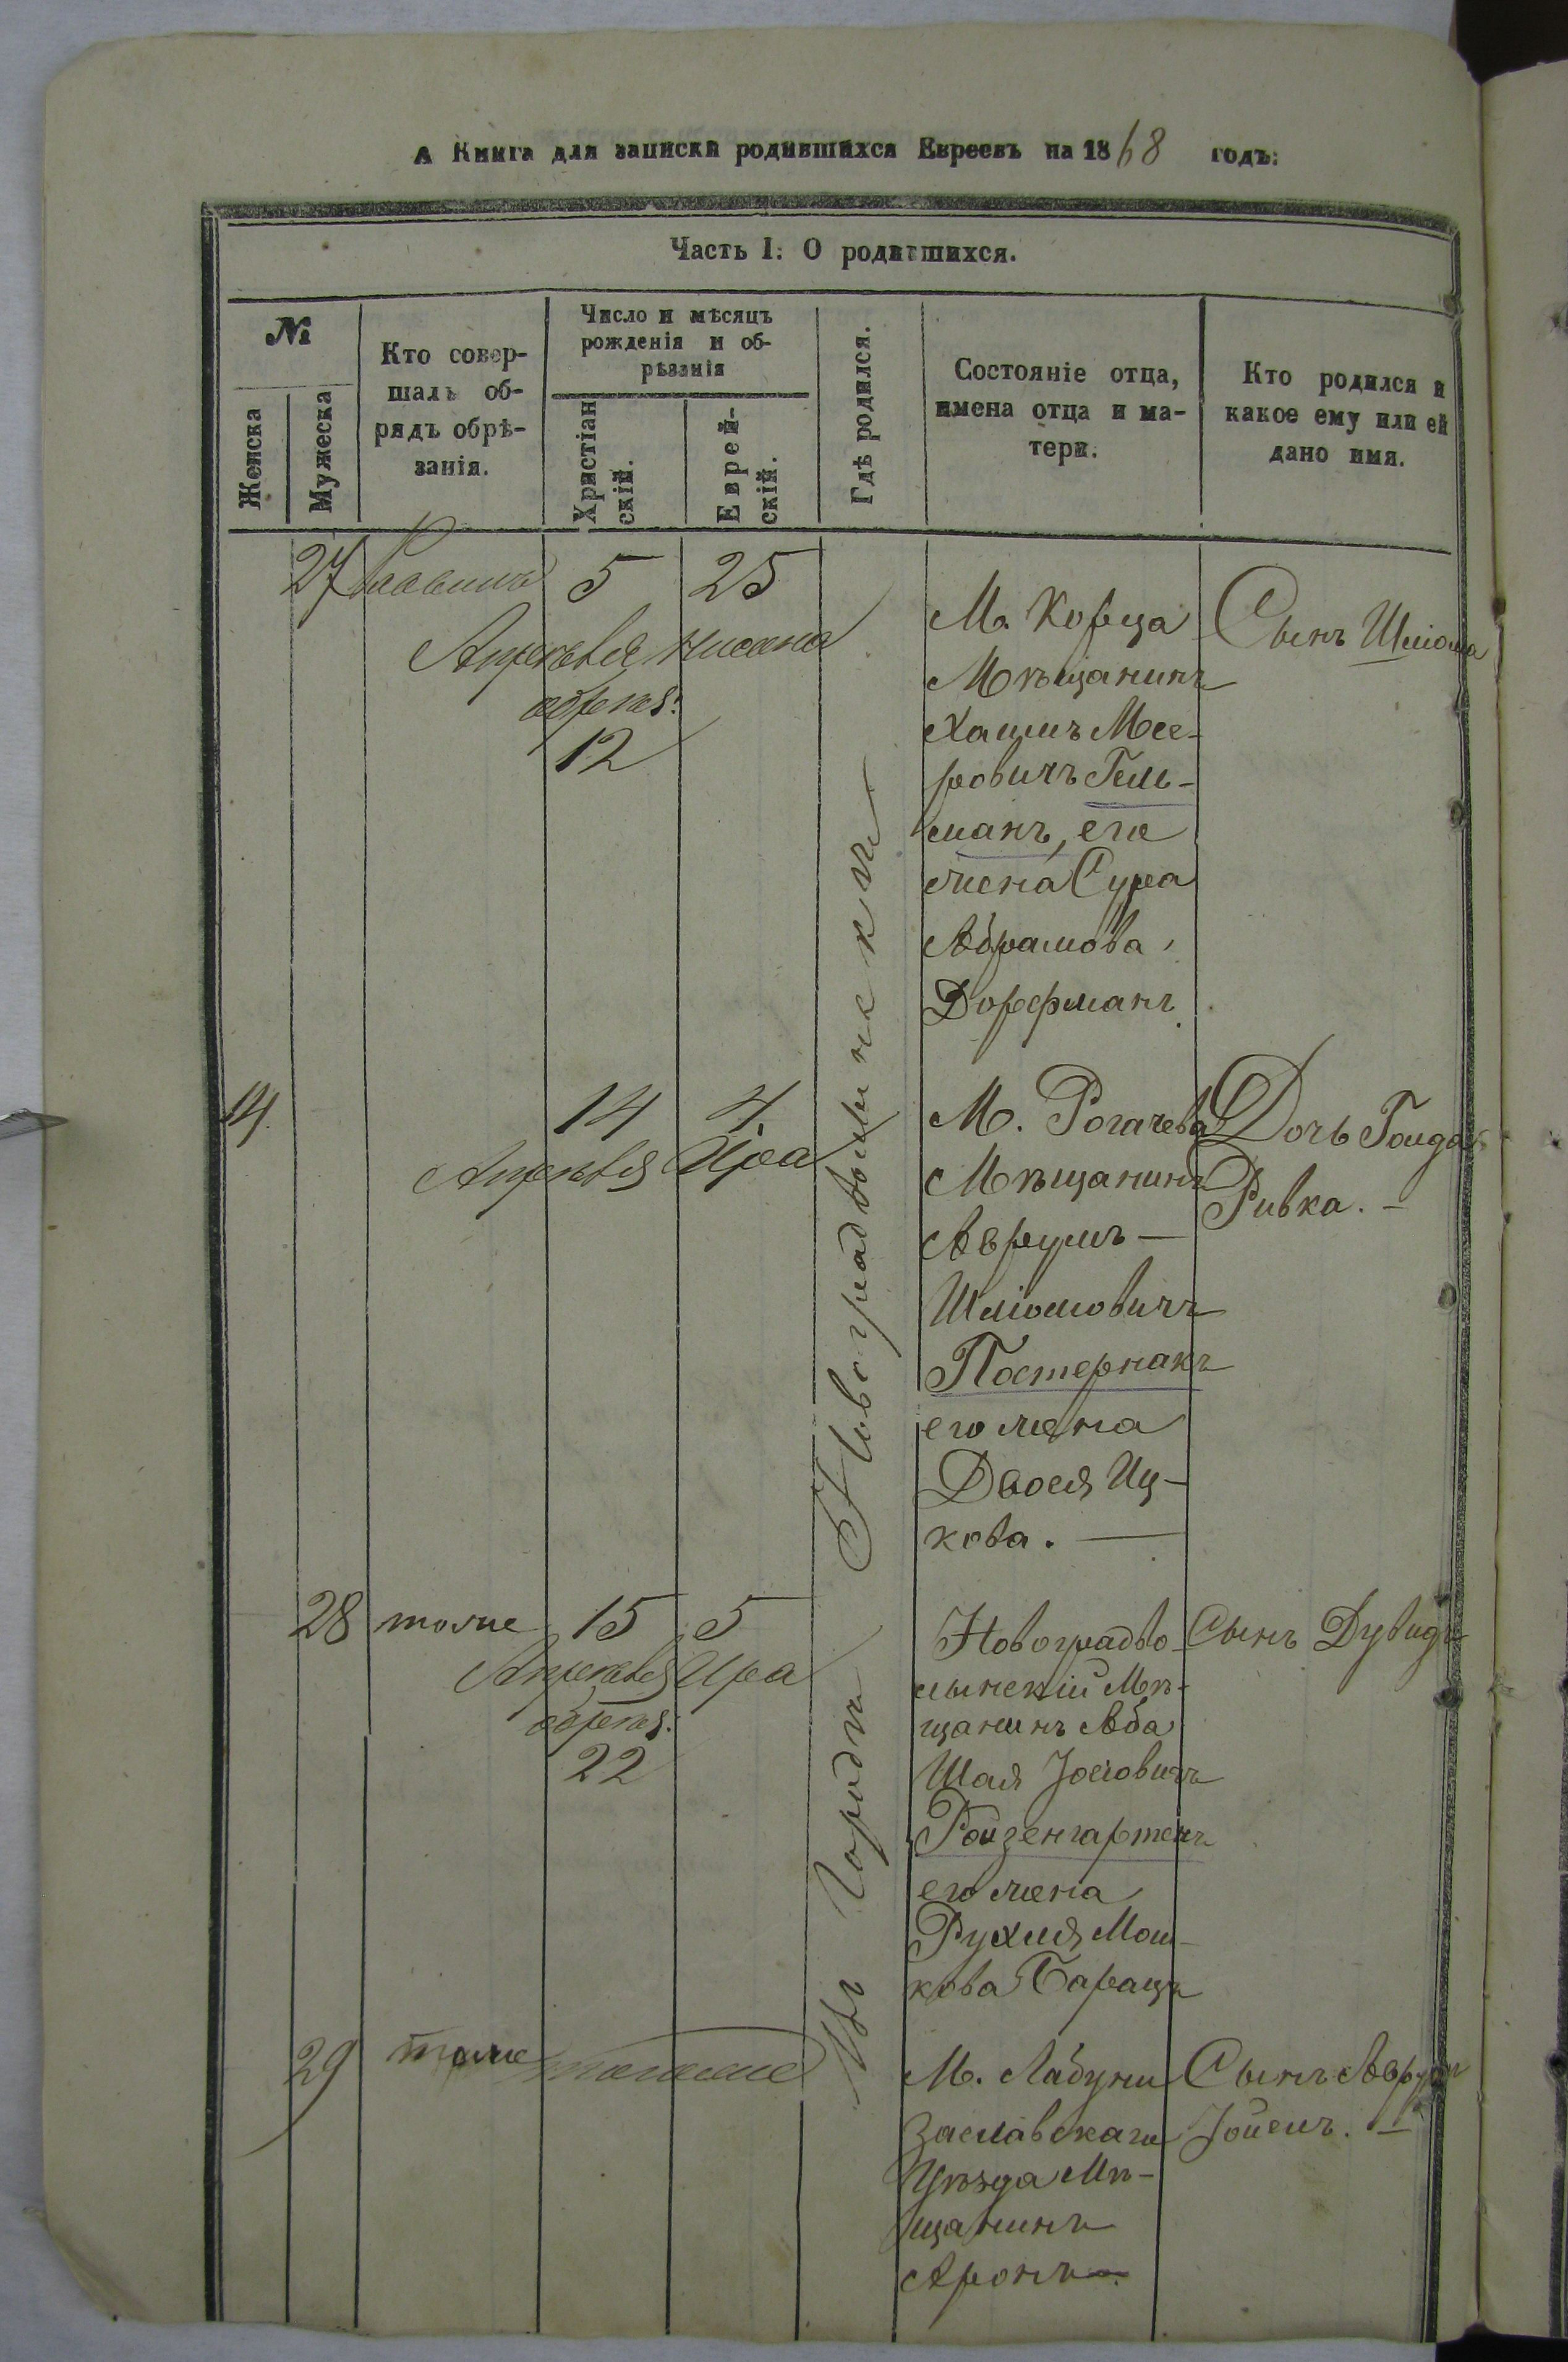 А Книга для записки родившихся Евреевъ на 1868 годъ:
Часть I: О родившихся.
№
Женска
Мужеска
Кто совер-
шалъ об-
рядъ обрѣ-
занія.
Число и мѣсяцъ
рожденія и об-
рѣзанія
Христіан
скій.
Еврей-
скій.
Гдѣ родился.
Состояніе отца,
имена отца и ма-
тери.
Кто родился и
какое ему или ей
дано имя.
Въ Городѣ Новоградволынскѣ
27 Раввинъ 5 25
Апрѣля Нисана
обрѣз:
12
М. Корца
Мѣщанинъ
Хаимъ Мее-
ровичъ Гель-
манъ, его
жена Сура
Абрамова
Дорфманъ
Сынъ Шлiома
14 14 4
Апрѣля Ира
М. Рогачева
Мѣщанинъ
Аврумъ —
Шлiомовичъ
Постернакъ
его жена
Двося Иц-
кова. —
Дочь Голда
Ривка. —
28 тоже 15 5
Апрѣля Ира
обрѣз:
22
Новоградво-
лынскій Мѣ-
щанинъ Аба
Шая Іосiовичъ
Ройзенгартенъ
его жена
Рухля Мош-
кова Барацъ
Сынъ Дувидъ
29 тоже тогоже
М. Лабуни
Заславскаго
Уѣзда Мѣ-
щанинъ
Аронъ —
Сынъ Аврум
Іойсиъ. —